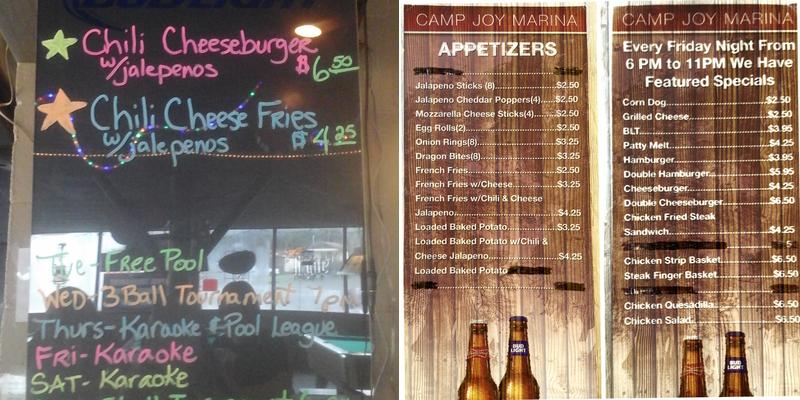 BUD LIGHT
Chili Cheeseburger
w/jalepenos $6.50
Chili Cheese Fries
w/jalepenos $4.25
Tue-Free Pool
WED-3Ball Tournament 7pm
Thurs-Karaoke & Pool League
FRI-Karaoke
SAT-Karaoke
CAMP JOY MARINA
APPETIZERS
Jalapeno Sticks (8)...$2.50
Jalapeno Cheddar Poppers(4)...$2.50
Mozzarella Cheese Sticks(4)...$2.50
Egg Rolls(2)...$2.50
Onion Rings(8)...$3.25
Dragon Bites(8)...$3.25
French Fries...$2.50
French Fries w/Cheese...$3.25
French Fries w/Chili & Cheese
Jalapeno...$4.25
Loaded Baked Potato...$3.25
Loaded Baked Potato w/Chili &
Cheese Jalapeno...$4.25
Loaded Baked Potato
BUD LIGHT
CAMP JOY MARINA
Every Friday Night From
6 PM to 11PM We Have
Featured Specials
Corn Dog...$2.50
Grilled Cheese...$2.50
BLT...$3.95
Patty Melt...$4.25
Hamburger...$3.95
Double Hamburger...$5.95
Cheeseburger...$4.25
Double Cheeseburger...$6.50
Chicken Fried Steak
Sandwich...$4.25
Chicken Strip Basket...$6.50
Steak Finger Basket...$6.50
Chicken Quesadilla...$6.50
Chicken Salad...$6.50
BUD LIGHT